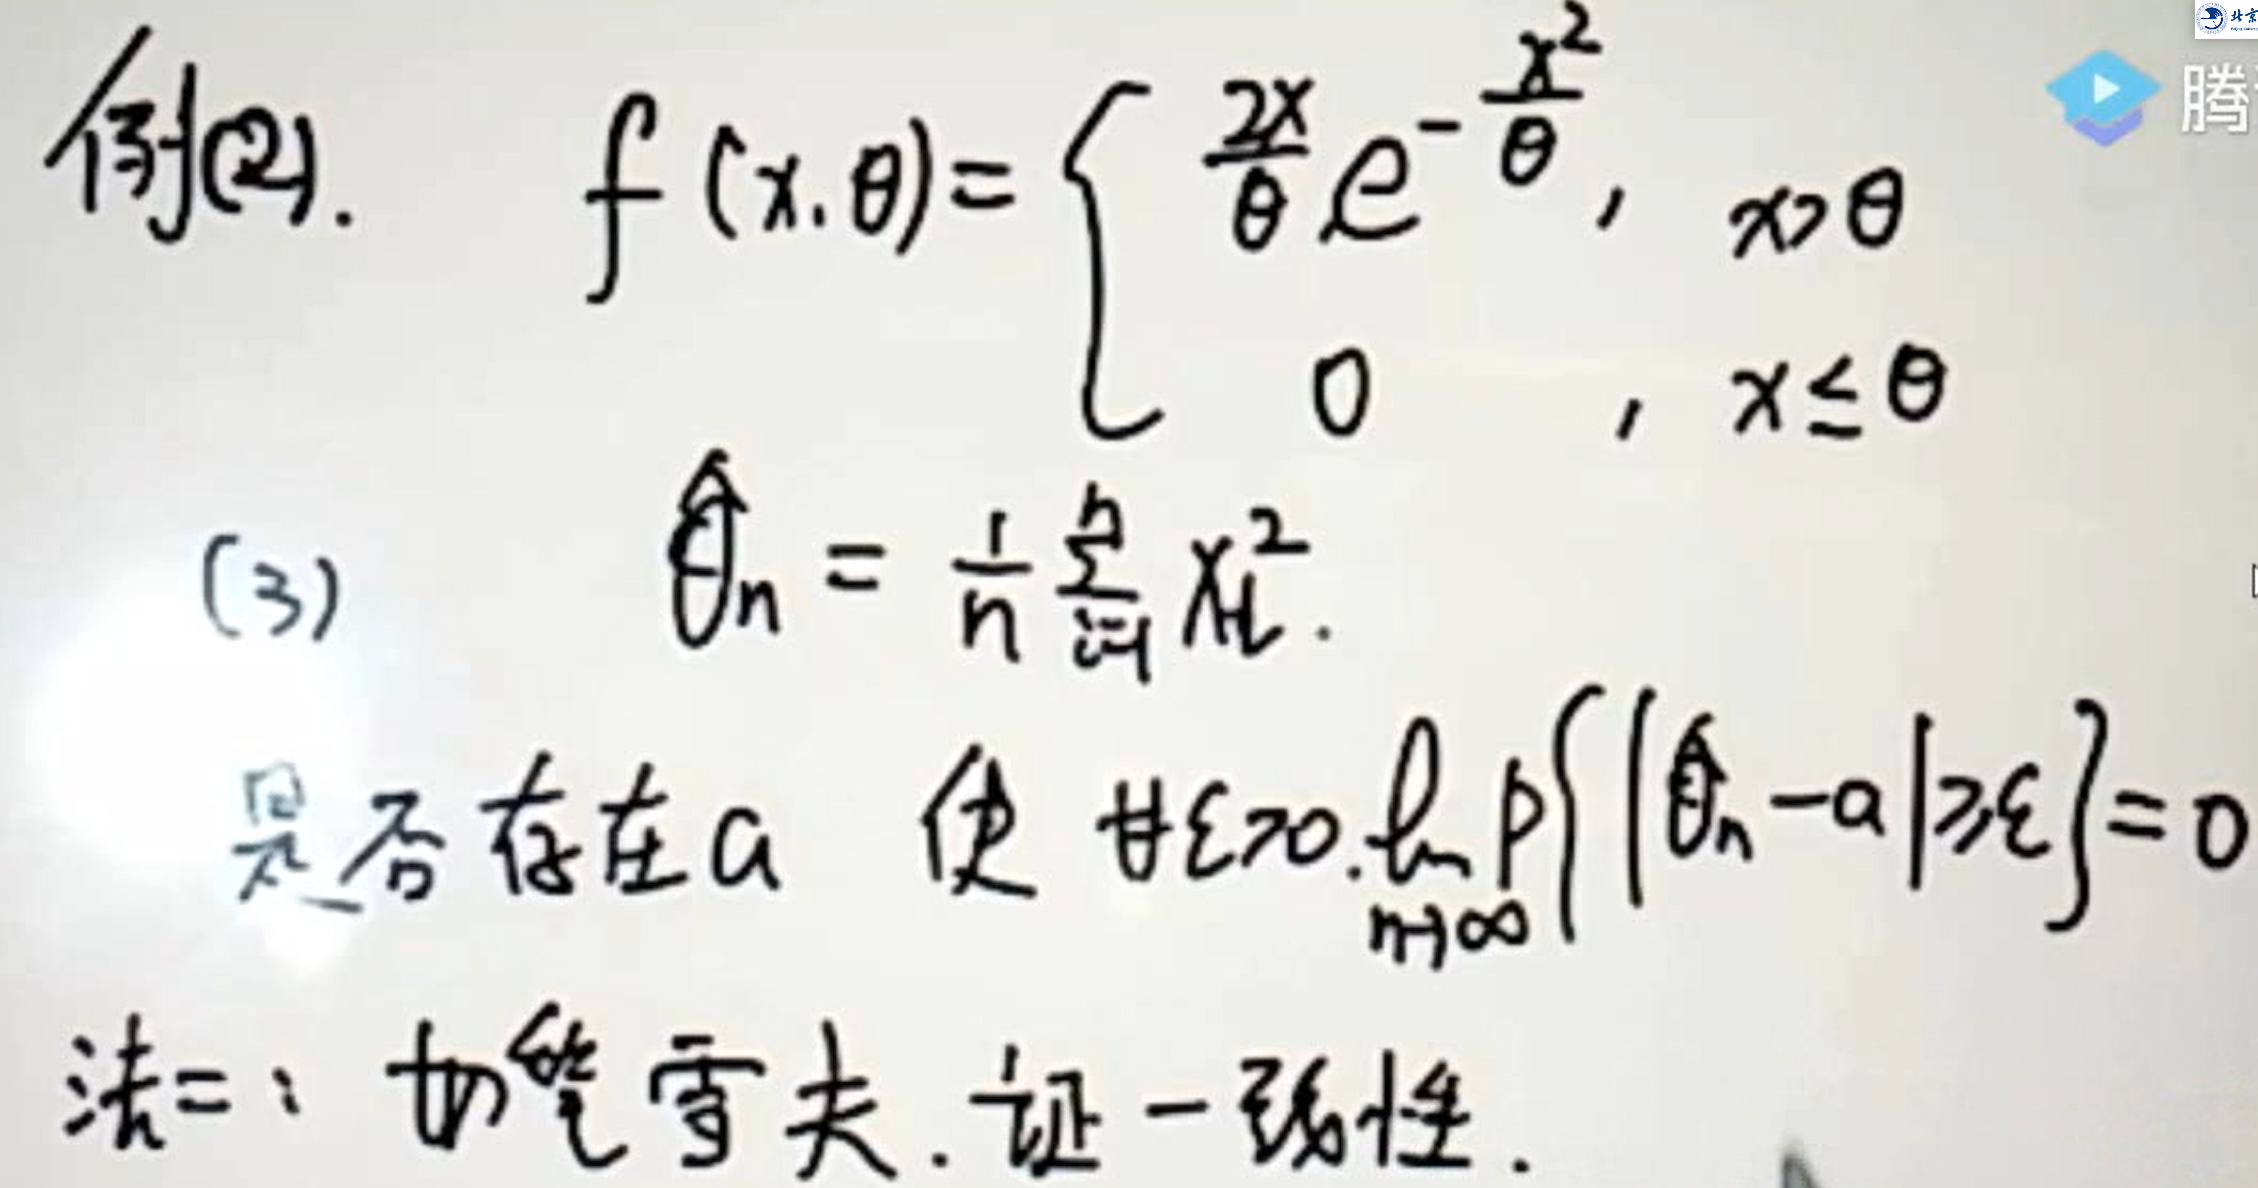 北京
腾
例(2). f(x.θ)= { 2x/θ e^{-x²/θ}, x>θ
0 , x≤θ
(3) θ̂n = 1/n Σ_{i=1}^{n} Xi².
是否存在a 使 ∀ε>0. lim_{n→∞} P{|θ̂n-a|≥ε}=0
法二: 切笔雪夫. 证一致性.